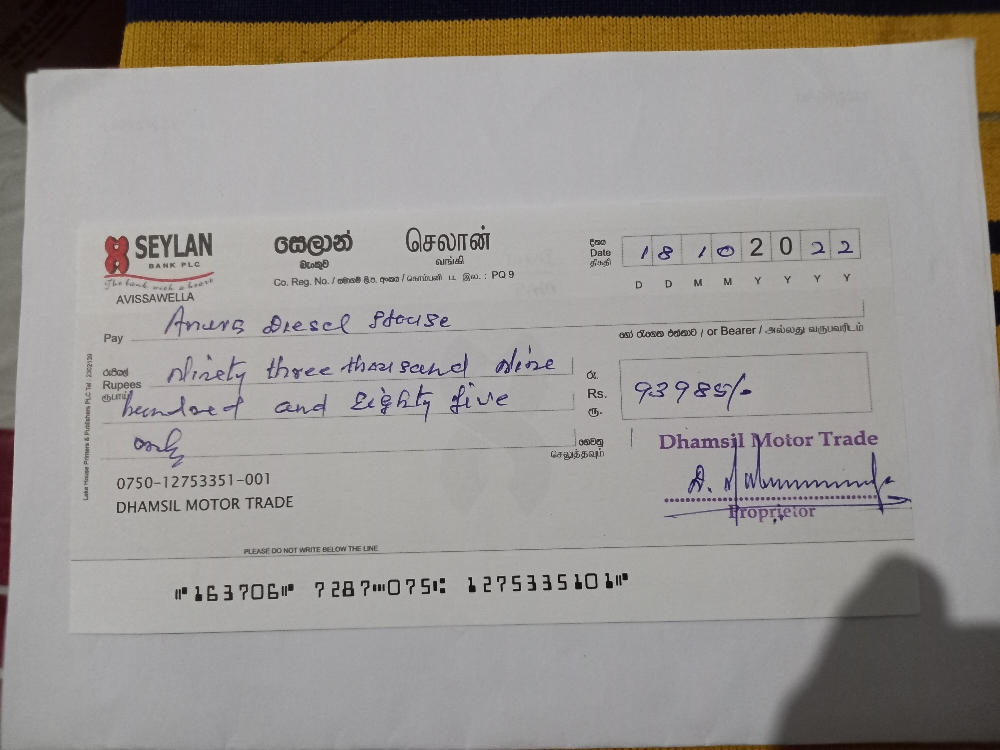 SEYLAN
BANK PLC
The bank with a heart
AVISSAWELLA
සෙලාන්
බැංකුව
செலான்
வங்கி
Co. Reg. No. / සමාගම් ලි.ප. අංකය / கொம்பனி பட இல. : PQ 9
දිනය
Date
திகதி
18 10 2022
D D M M Y Y Y Y
Pay Anura Diesel House
හෝ රැගෙන එන්නාට / or Bearer / அல்லது வருபவரிடம்
රුපියල්
Rupees
ரூபாய்
Ninety three thousand Nine
hundred and Eighty five
only
රු.
Rs.
ரூ.
93985/-
ගෙවනු
செலுத்தவும்
Dhamsil Motor Trade
Proprietor
0750-12753351-001
DHAMSIL MOTOR TRADE
Lake House Printers & Publishers PLC Tel : 2302139
PLEASE DO NOT WRITE BELOW THE LINE
⑈163706⑈ 7287⑉075⑆ 1275335101⑈